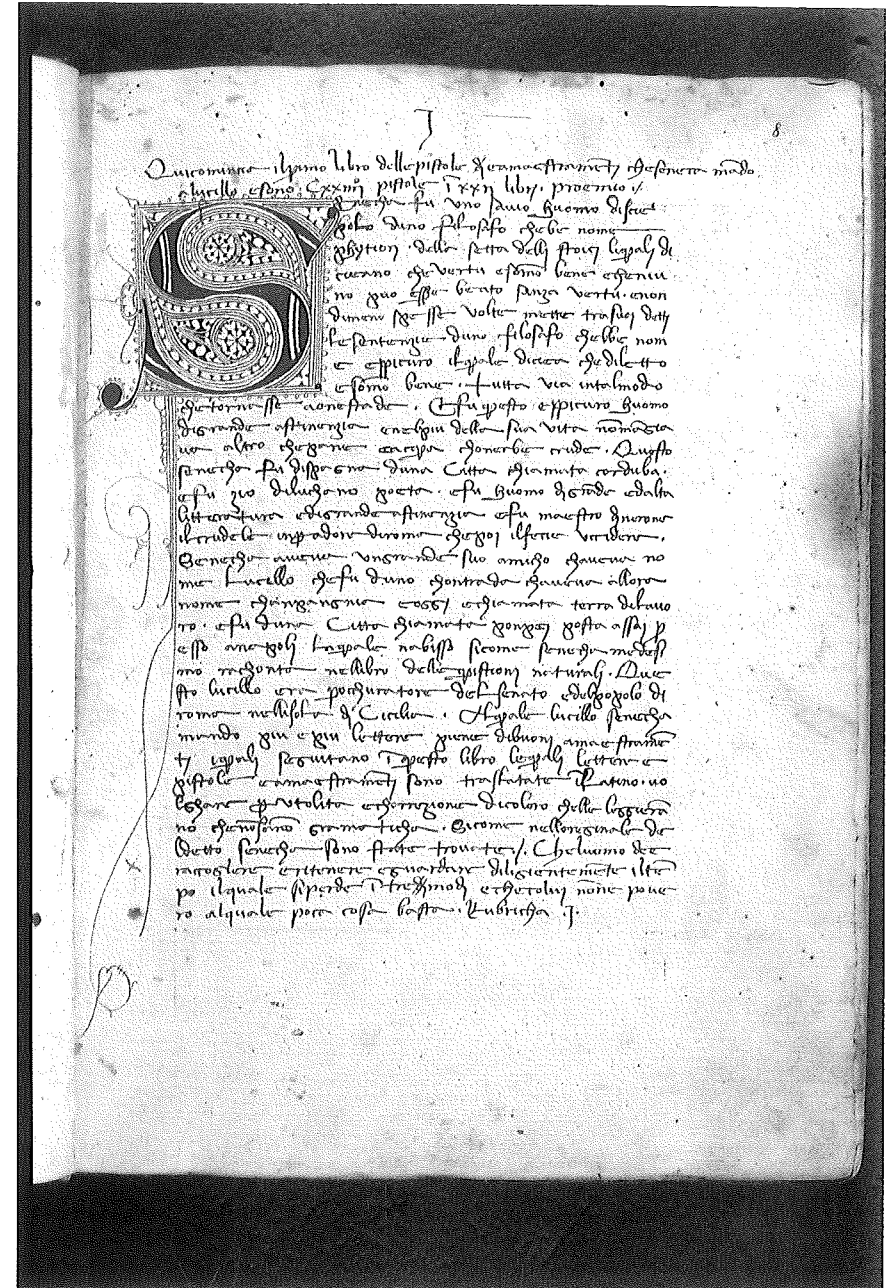 J
8
Qui comincia il primo libro delle pistole & eamaestramēti che seneca mādo
a lucillo e sono Cxxiiij pistole ī xxij libri. proemio.
Senecha fu uno savio huomo disce
polo duno filosofo chebe nome
phytion. della setta delli stoici liquali di
ceano che vertu e sōmo bene e che niu
no puo esse beato sanza vertu. e non
dimeno spesse volte mette tra suoi detti
le sentenzie duno filosofo chebbe nom
e eppicuro il quale dicea che diletto
e sōmo bene. Tutta via intalmodo
che tornasse aonestade. E fu questo eppicuro huomo
digrande astinenzia enelpiu della sua vita nō māgia
va altro che pane eacqua chonerbe crude. Questo
senecha fu dispagna duna Citta chiamata corduba.
e fu zio diluchano poeta. e fu huomo di grāde edalta
litteratura edigrande astinenzia e fu maestro di nerone
il crudele inpadore diroma che poi il fecie uccidere.
Senecha aveva un grande suo amicho chaveva no
me Lucillo che fu duno chontrada chaveva allora
nome chanpangnia eoggi echiamata terra dilavo
ro. e fu duna Citta chiamata ponpei posta assai p
esso anapoli la quale nabisso sicome senecha medes
mo rachonta nellibro delle quistioni naturali. Que
sto lucillo era pochuratore del senato edelpopolo di
roma nellisola di Cicilia. Al quale lucillo senecha
mando piu e piu lettere piene dibuoni amaestramēn
ti iquali seguitano ī questo libro lequali lettere e
pistole eamaestramēti sono traslatate ī Latino. vo
lghare p utolita echorrezione dicoloro chelle leggierā
no che nōsāno gramaticha. Sicome nelloreginale de
ldetto senecha sono state trovate. Che luomo dee
racogliere eritenere eguardare diligientemēnte iltē
po il quale si perde ī tre modi e che colui nōne pove
ro alquale poca cosa basta. Rubricha .J.